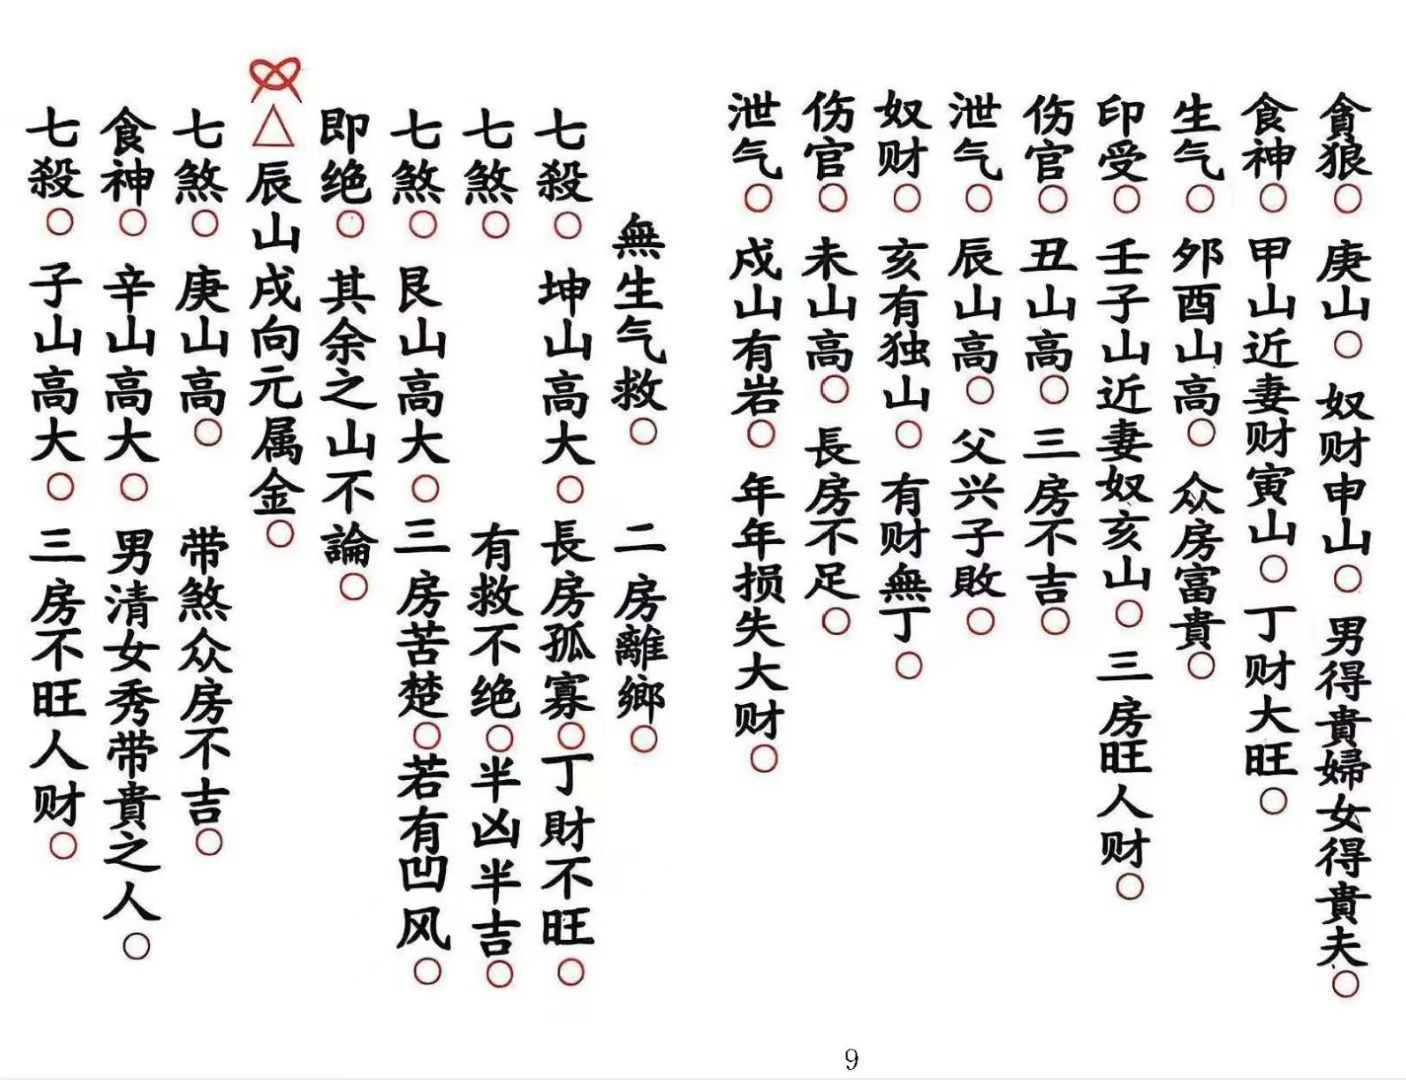 貪狼○庚山○奴财申山○男得貴婦女得貴夫○
食神○甲山近妻财寅山○丁财大旺○
生气○夘酉山高○众房富貴○
印受○壬子山近妻奴亥山○三房旺人财○
伤官○丑山高○三房不吉○
泄气○辰山高○父兴子敗○
奴财○亥有独山○有财無丁○
伤官○未山高○長房不足○
泄气○戍山有岩○年年损失大财○
無生气救○二房離鄉○
七殺○坤山高大○長房孤寡○丁財不旺○
七煞○有救不绝○半凶半吉○
七煞○艮山高大○三房苦楚○若有凹风○
即绝○其余之山不論○
△辰山戍向元属金○
七煞○庚山高○带煞众房不吉○
食神○辛山高大○男清女秀带貴之人○
七殺○子山高大○三房不旺人财○
9